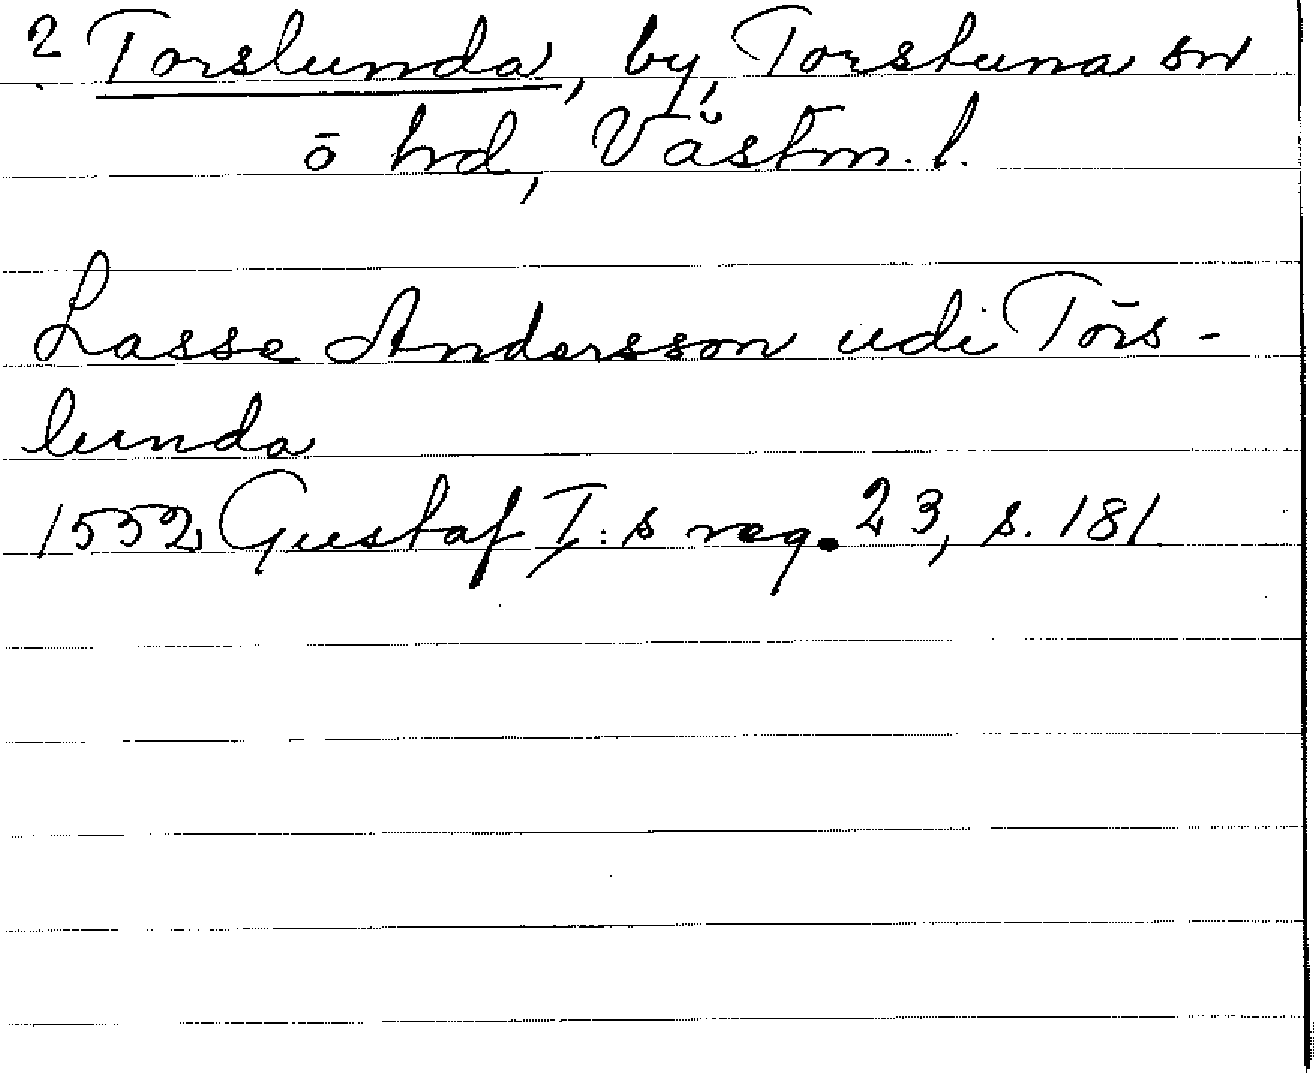 ? Torslunda, by, Torstuna sn
o hd, Västm. l.
Lasse Andersson udi Tors-
lunda
1552 Gustaf I:s reg. 23, s. 181